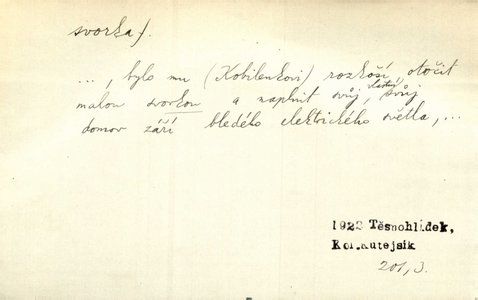 svorka f.
..., bylo mu (Kobilenkovi) rozkoší, otočit
malou svorkou a naplnit svůj, vlastní, svůj
domov září bledého elektrického světla, ...
1922 Těsnohlídek,
Kol.Kutejsík
201, 3.